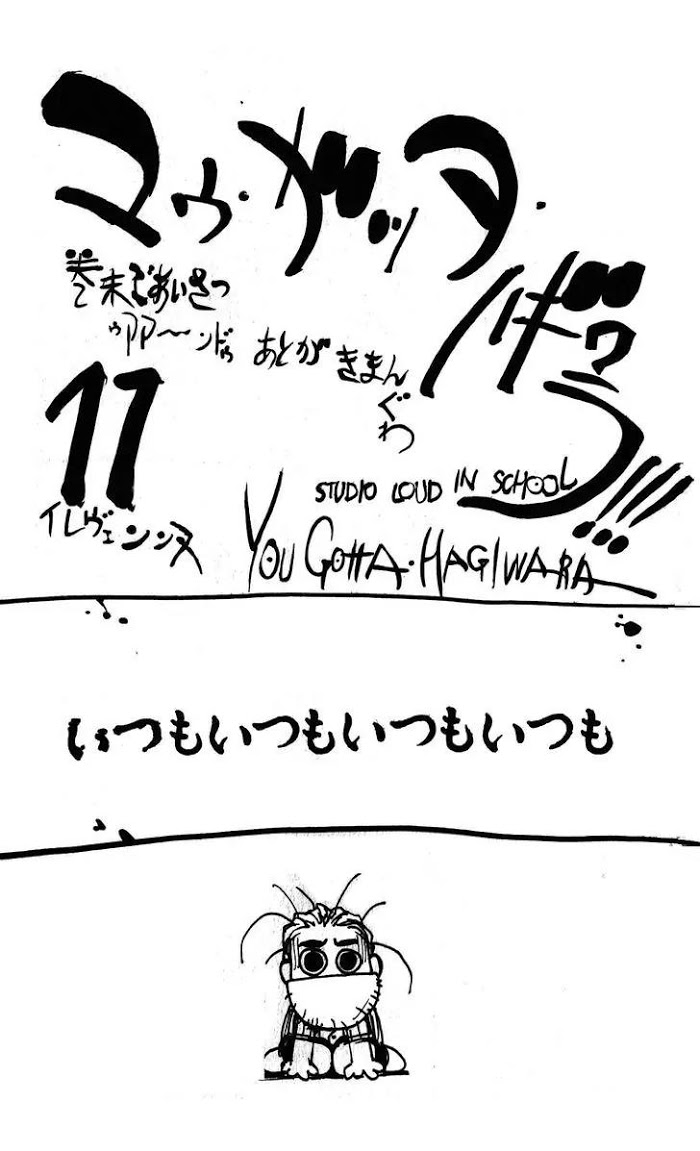 ユゥ・ガッタ・
ハギワラ!!!
巻末ごあいさつ
ゥアア〜ンドゥ あとがきまんぐわ
11
イレヴェンンヌ
STUDIO LOUD IN SCHOOL
YOU GOTTA・HAGIWARA
いつもいつもいつもいつも